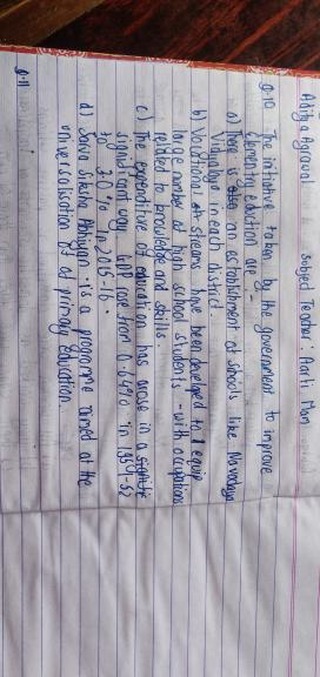 Aditya Agrawal Subject Teacher: Aarti Mam
Q.10 The initiative taken by the government to improve
elementry eduction are -
a) There is an establishment of schools like Navodaya
Vidyalaya in each district.
b) Vocational streams have been developed to equip
large number of high school students - with occupations
related to knowledge and skills.
c) The expenditure of education has arose in a
significant way. GDP rose from 0.64% in 1951-52
to 3.0% in 2015-16.
d) Sarva Siksha Abhiyan is a programme aimed at the
universalisation of of primary education.
Q.11